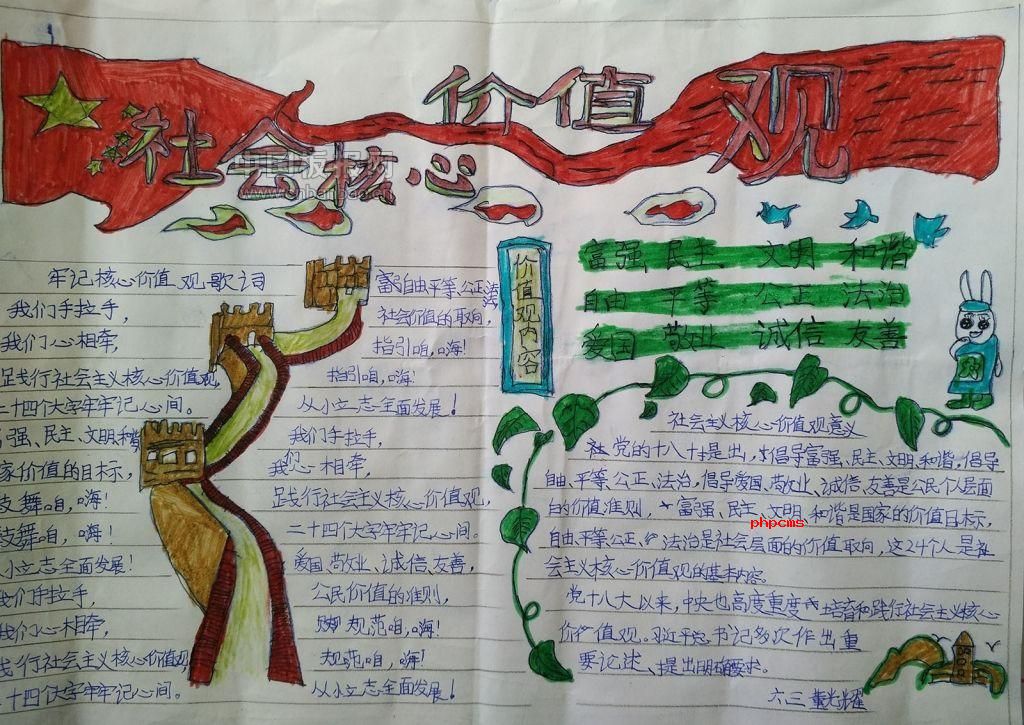 社会核心价值观
牢记核心价值观歌词
我们手拉手,
我们心相牵,
足戋行社会主义核心价值观,
二十四个大字牢牢记心间。
富强、民主、文明和谐
家价值的目标,
鼓舞咱,嗨!
鼓舞咱,嗨!
从小立志全面发展!
我们手拉手,
我们心相牵,
足戋行社会主义核心价值观
二十四个大字牢牢记心间。
富强自由平等、公正法治
社会价值的取向,
指引咱,嗨!
指引咱,嗨!
从小立志全面发展!
我们手拉手,
我们心相牵,
足戋行社会主义核心价值观,
二十四个大字牢牢记心间。
爱国、敬业、诚信、友善,
公民价值的准则,
规范咱,嗨!
规范咱,嗨!
从小立志全面发展!
价值观内容
富强 民主 文明 和谐
自由 平等 公正 法治
爱国 敬业 诚信 友善
社会主义核心价值观意义
党的十八大提出,倡导富强、民主、文明、和谐,倡导
自由、平等、公正、法治,倡导爱国、敬业、诚信、友善是公民个人层面
的价值准则,富强、民主、文明、和谐是国家的价值目标,
自由、平等公正、法治是社会层面的价值取向,这24个人是社
会主义核心价值观的基本内容。
党十八大以来,中央也高度重度培育和践行社会主义核心
价值观。习近平总书记多次作出重
要论述、提出明确要求。
六三 董光耀
phpcms